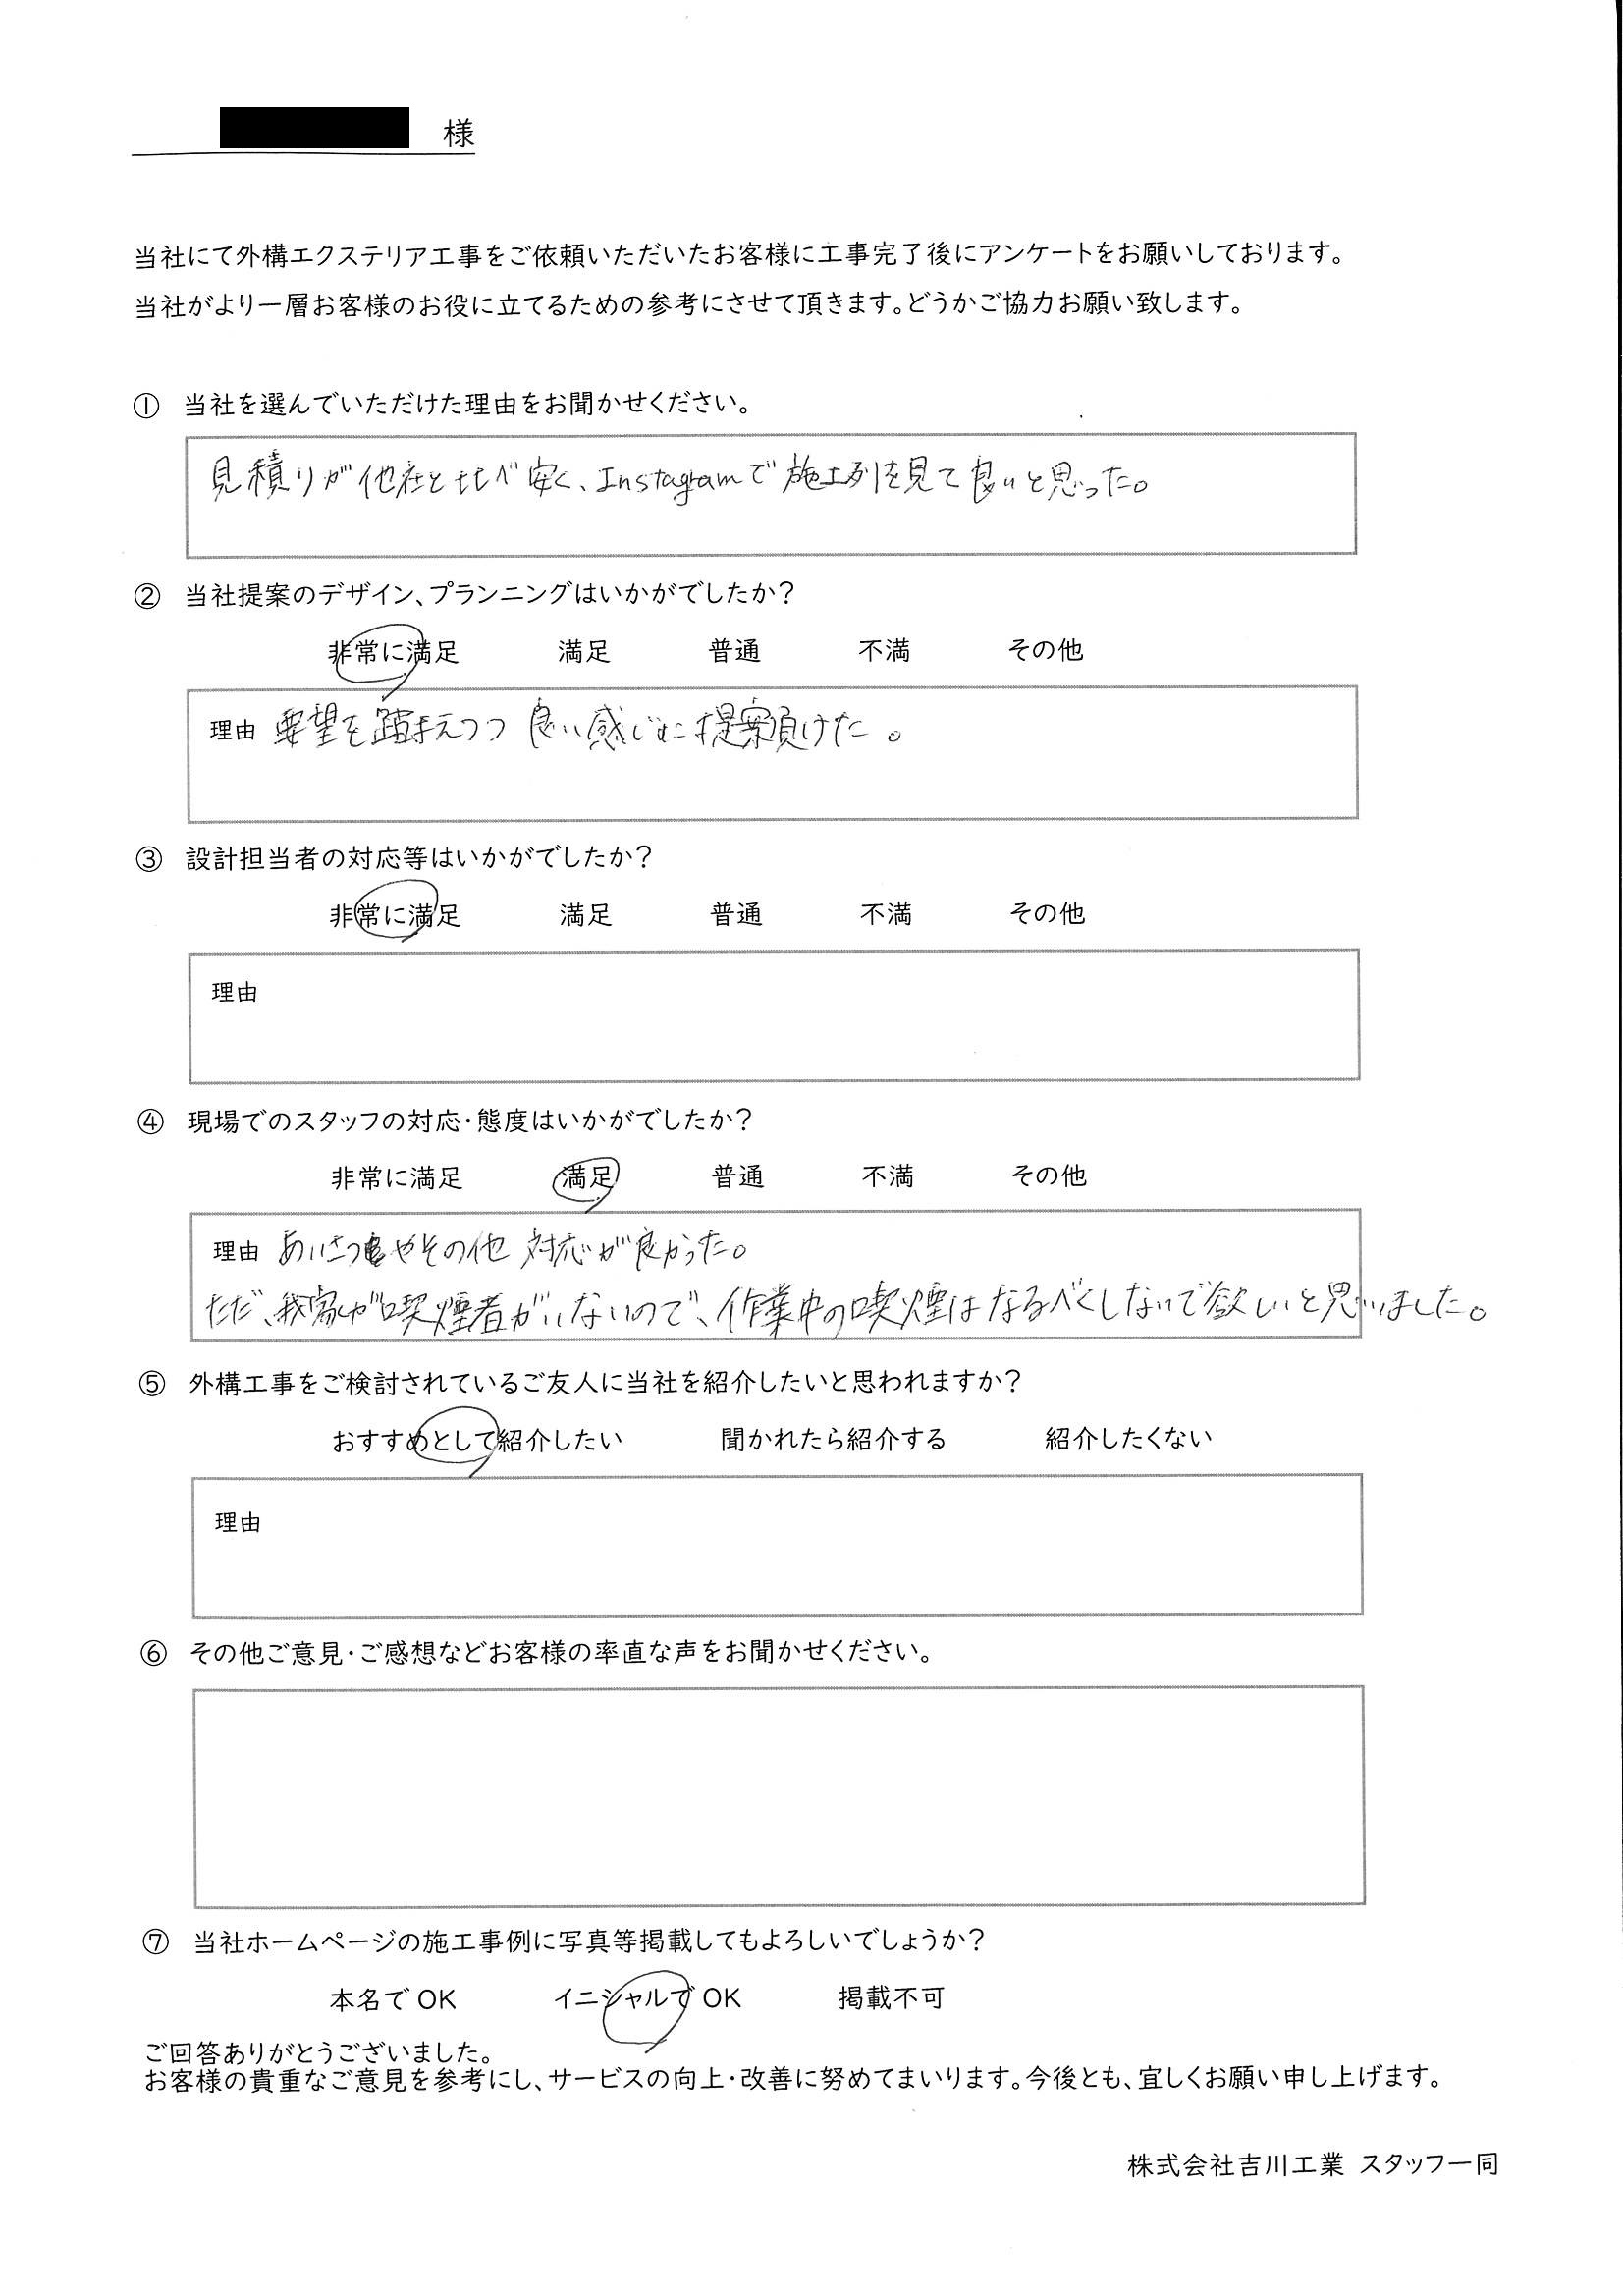 様
当社にて外構エクステリア工事をご依頼いただいたお客様に工事完了後にアンケートをお願いしております。
当社がより一層お客様のお役に立てるための参考にさせて頂きます。どうかご協力お願い致します。
① 当社を選んでいただけた理由をお聞かせください。
見積りが他社と比べ安く、Instagramで施工例を見て良いと思った。
② 当社提案のデザイン、プランニングはいかがでしたか?
非常に満足 満足 普通 不満 その他
理由 要望を踏まえつつ 良い感じに提案頂けた。
③ 設計担当者の対応等はいかがでしたか?
非常に満足 満足 普通 不満 その他
理由
④ 現場でのスタッフの対応・態度はいかがでしたか?
非常に満足 満足 普通 不満 その他
理由 あいさつやその他 対応が良かった。
ただ、我家が喫煙者がいないので、作業中の喫煙はなるべくしないで欲しいと思いました。
⑤ 外構工事をご検討されているご友人に当社を紹介したいと思われますか?
おすすめとして紹介したい 聞かれたら紹介する 紹介したくない
理由
⑥ その他ご意見・ご感想などお客様の率直な声をお聞かせください。
⑦ 当社ホームページの施工事例に写真等掲載してもよろしいでしょうか?
本名で OK イニシャルで OK 掲載不可
ご回答ありがとうございました。
お客様の貴重なご意見を参考にし、サービスの向上・改善に努めてまいります。今後とも、宜しくお願い申し上げます。
株式会社吉川工業 スタッフ一同